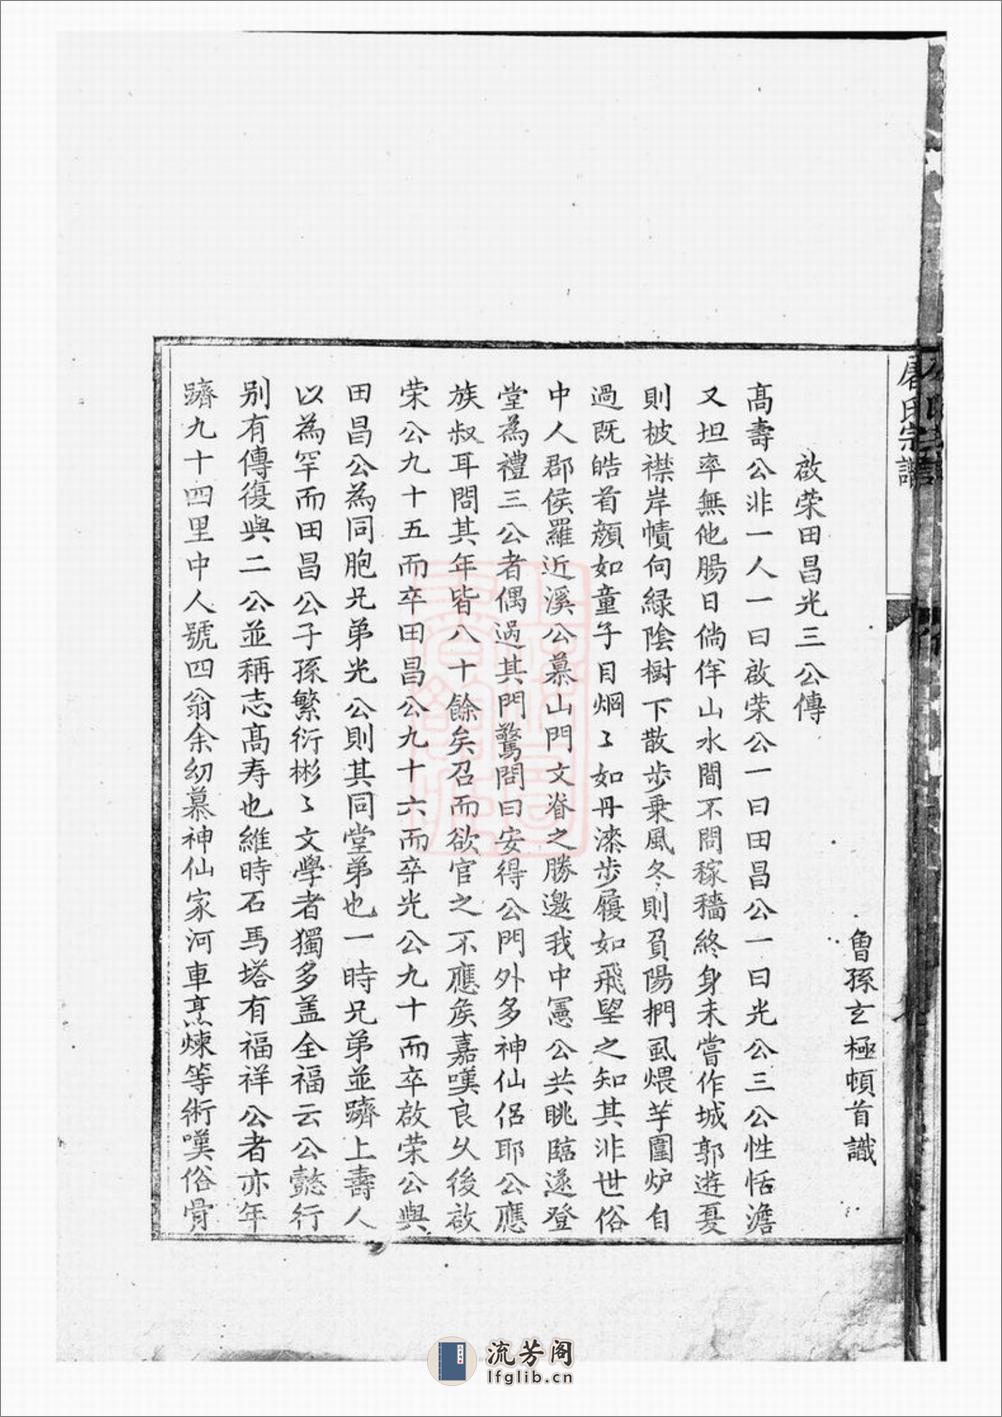 屠氏宗譜
魯孫玄極頓首識
啟荣田昌光三公傳
高壽公非一人一曰啟荣公一曰田昌公一曰光公三公性恬澹
又坦率無他腸日倘佯山水間不問稼穡終身未嘗作城郭遊夏
則披襟岸幘向綠陰樹下散步乗風冬則負陽捫虱煨芋圍炉自
過既皓首顔如童子目烱〻如丹漆步履如飛望之知其非世俗
中人郡侯羅近溪公慕山門文脊之勝邀我中憲公共眺臨遂登
堂為禮三公者偶過其門驚問曰安得公門外多神仙侣耶公應
族叔耳問其年皆八十餘矣召而欲官之不應矦嘉嘆良乆後啟
荣公九十五而卒田昌公九十六而卒光公九十而卒啟荣公與
田昌公為同胞兄弟光公則其同堂弟也一時兄弟並躋上壽人
以為罕而田昌公子孫繁衍彬〻文學者獨多盖全福云公懿行
别有傳復與二公並稱志高寿也維時石馬塔有福祥公者亦年
躋九十四里中人號四翁余幼慕神仙家河車烹煉等術嘆俗骨
流芳阁
lfglib.cn